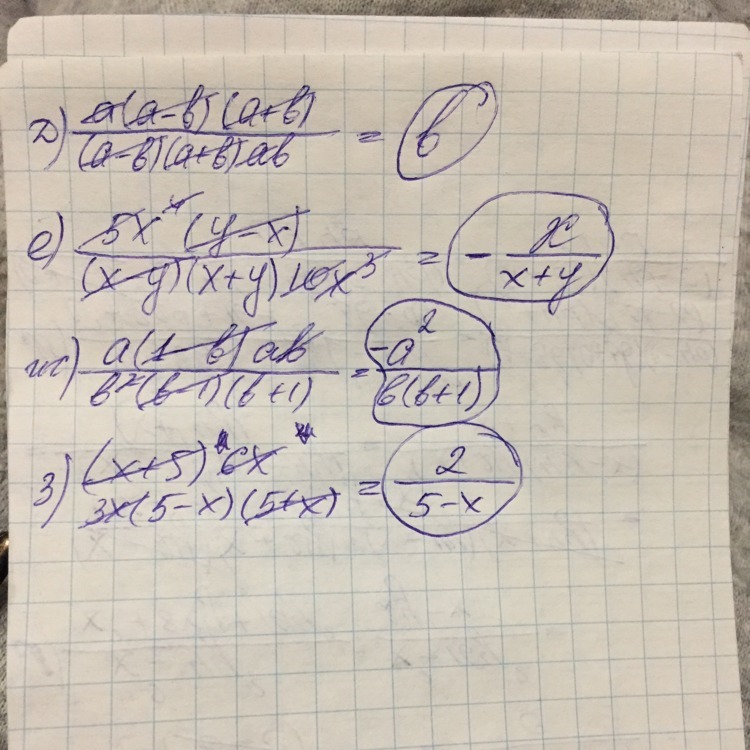 д) a(a-b)(a+b) / (a-b)(a+b)ab = b
е) 5x (y-x) / (x-y)(x+y)10x³ = - x / x+y
ж) a(1-b)ab / b²(b-1)(b+1) = -a² / b(b+1)
з) (x+5) 6x / 3x(5-x)(5+x) = 2 / 5-x